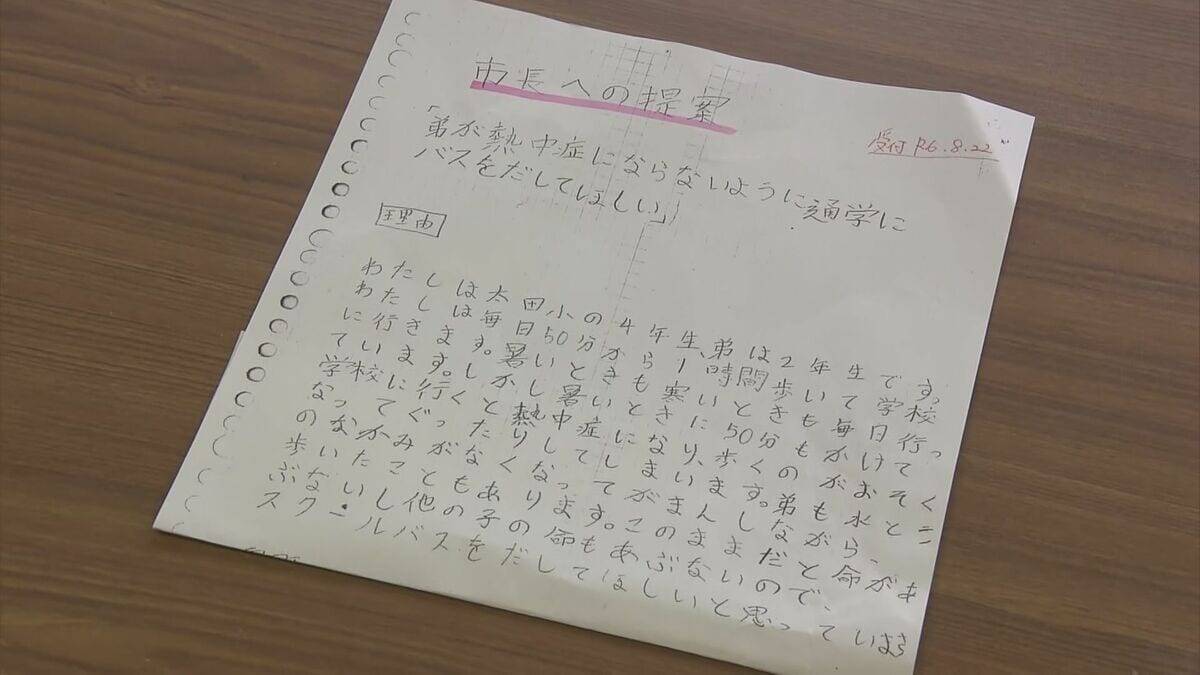 市長への提案
受付 R6.8.22
「弟が熱中症にならないように通学に
バスをだしてほしい」
理由
わたしは太田小の4年生、弟は2年生です。
わたしは毎日50分から1時間歩いて学校
に行きます。暑いときも寒いときも毎日行っ
ています。しか 暑い とき に 50分もかけて
学校に行くと 熱中症に なり、歩くのがおそく
なって ぐったりして しまいます。弟も水と
のなかみがなくなって がまんしながら、
歩いたこともあります。このままだと命があ
ぶないし他の子の命もあぶないので、
スクールバスをだしてほしいと思っています